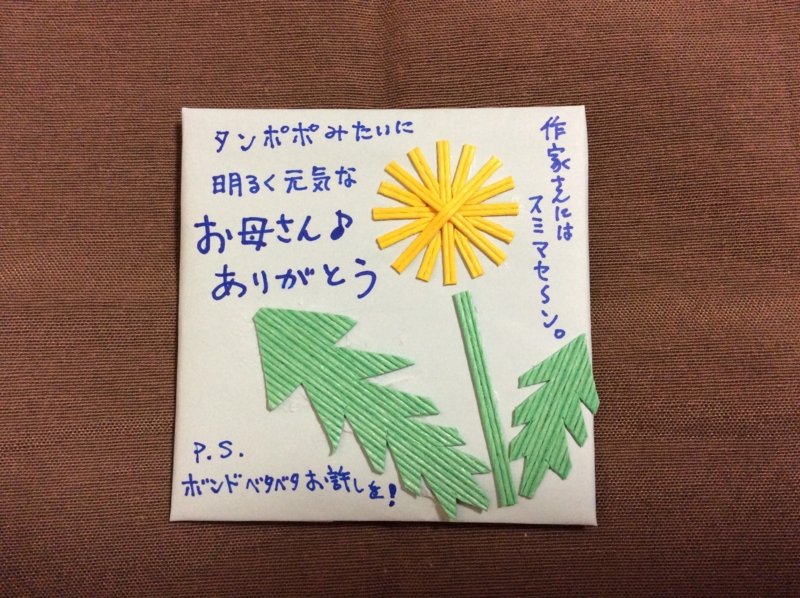 タンポポみたいに
明るく元気な
お母さん♪
ありがとう
作家さんには
スミマセ〜ン。
P.S.
ボンドベタベタお許しを!